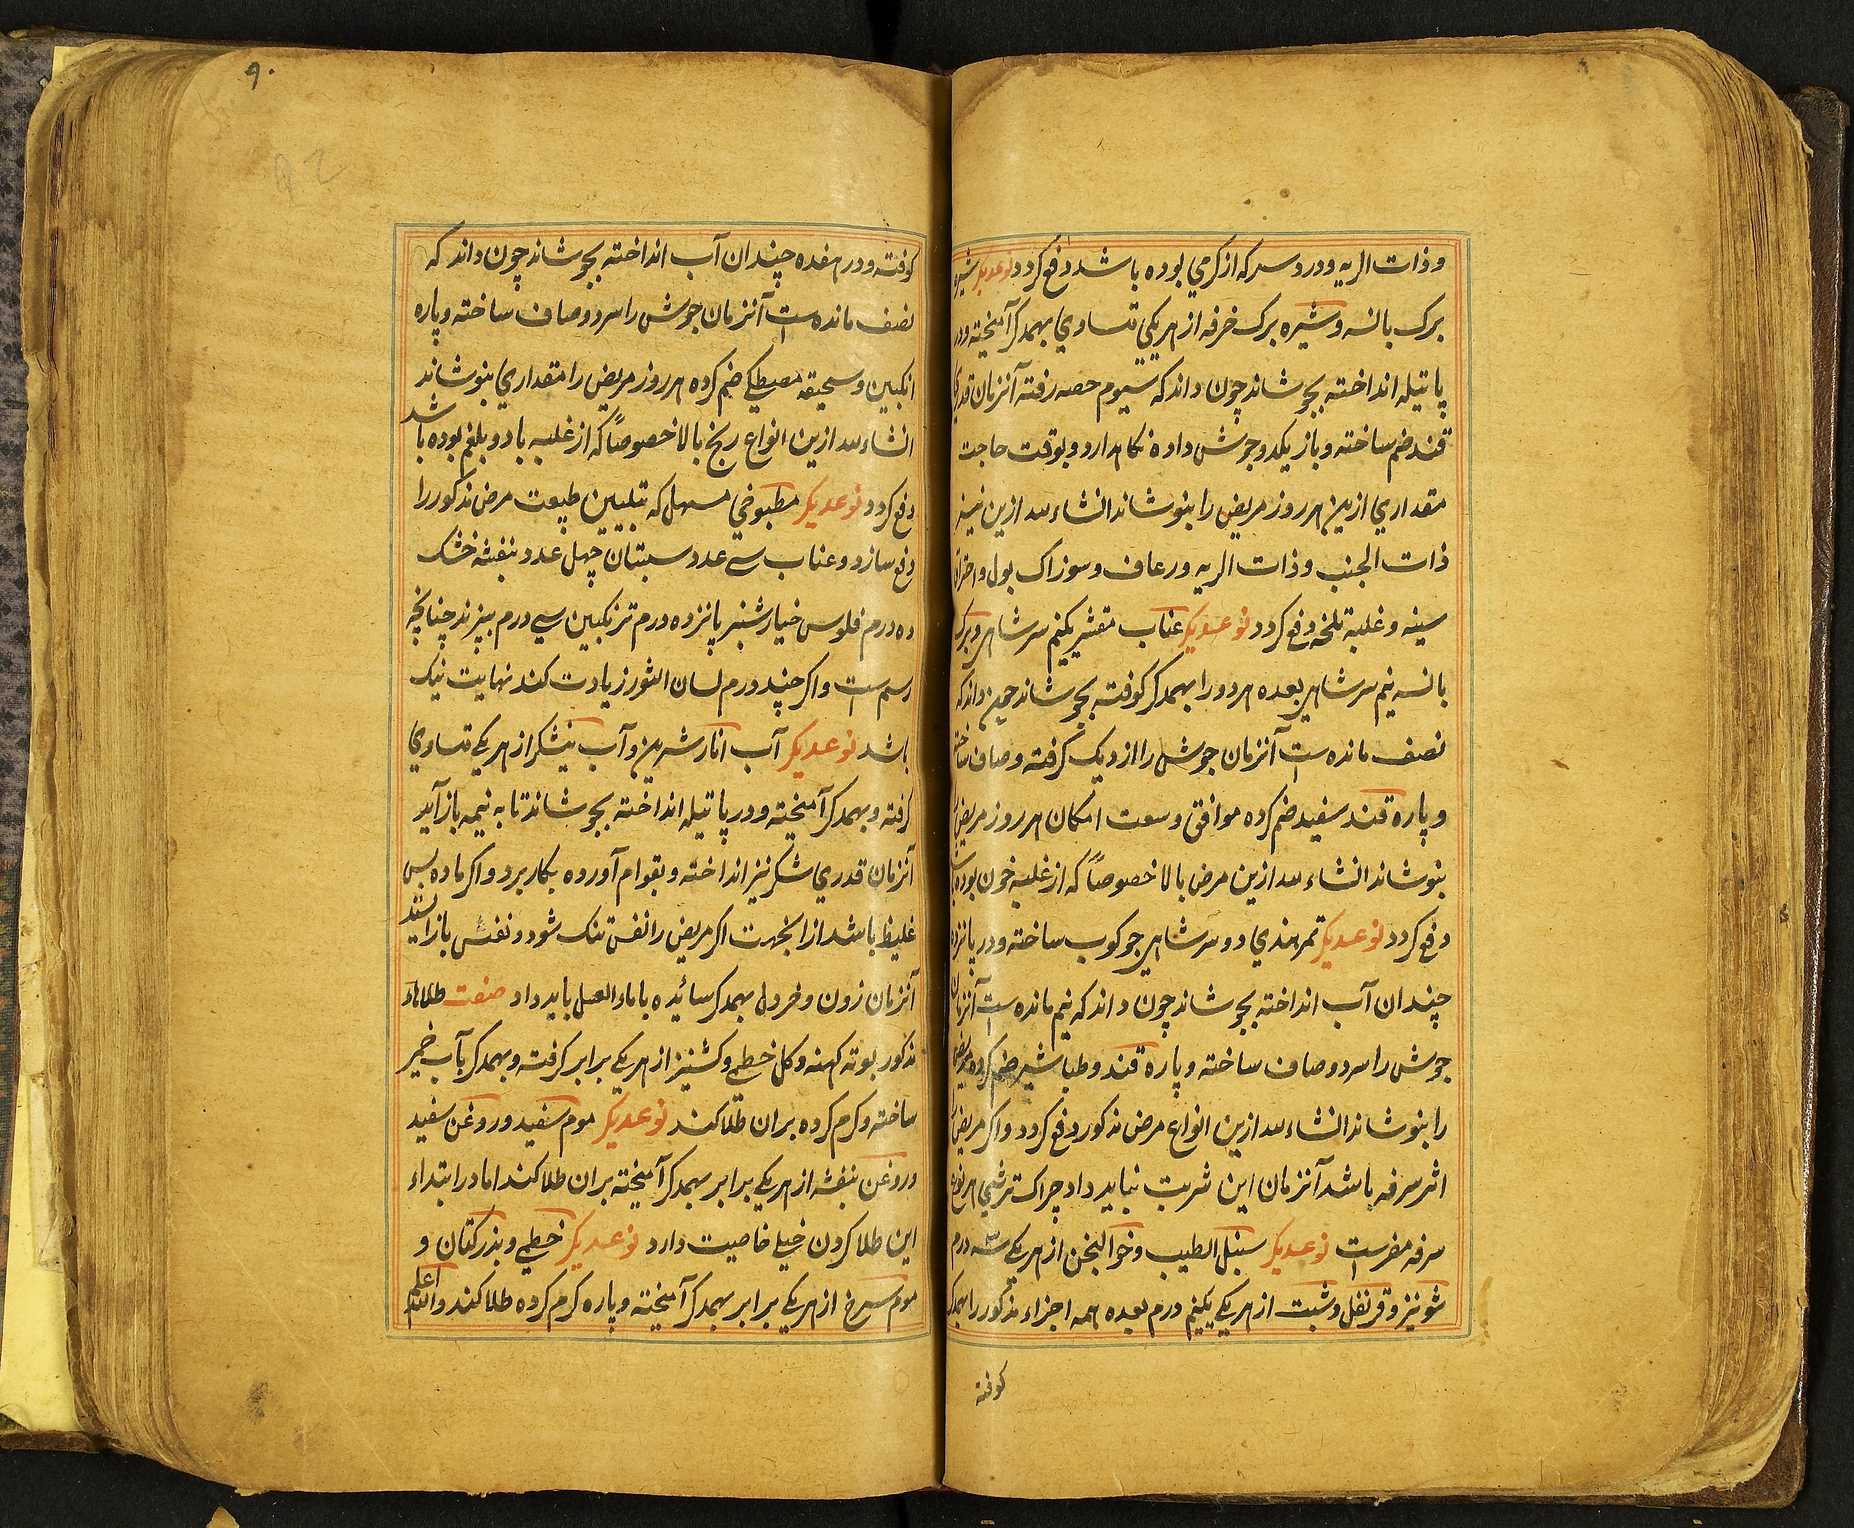 و ذات الریه و درد سر که از کرمي بوده باشد دفع کردد نوعدیکر شیره
برک بانسه و شیره برک خرفه از هریکي تساوي بهمدکر آمیخته و در
پاتیله انداخته بجوشاند چون داند که سیوم حصه رفته آنزمان قدري
قند ضم ساخته و باز یکدو جوش داده نکاهدارد و بوقت حاجت
مقداري ازین هر روز مریض را بنوشاند انشاءالله ازین نیز
ذات الجنب و ذات الریه و رعاف و سوزاک بول و احتراق
سینه و غلبهٔ تلخه دفع کردد نوعدیکر عناب مقشر یکنیم سرشاهي و برک
بانسه نیم سرشاهي بعده هر دو را بهمدکر کوفته بجوشاند همین داند که
نصف مانده است آنزمان جوش را از دیک کرفته و صاف ساخته
و پاره قند سفید ضم کرده موافق وسعت امکان هر روز مریض را
بنوشاند انشاءالله ازین مرض بالا خصوصاً که از غلبه خون بوده باشد
دفع کردد نوعدیکر تمر هندي دو سرشاهي جوکوب ساخته و در پانزده
چندان آب انداخته بجوشاند چون داند که نیم مانده است آنزمان
جوش را سرد و صاف ساخته و پاره قند و طباشیر ضم کرده مریض
را بنوشاند انشاءالله ازین انواع مرض مذکور دفع کردد و اکر مریض را
اثر سرفه باشد آنزمان این شربت نباید داد چراکه ترشي هر نوع
سرفه مضرست نوعدیکر سنبل الطیب و خوالنجن از هریکي سه درم
شونیز و قرنفل و شبت از هریکي یکنیم درم بعده همه اجزاء مذکور را بهمدکر
کوفته
۹۰
92
کوفته و در هفده چندان آب انداخته بجوشاند چون داند که
نصف مانده است آنزمان جوش را سرد و صاف ساخته و پاره
انکبین و سحیقه مصطکي ضم کرده هر روز مریض را مقداري بنوشاند
انشاءالله ازین انواع رنج بالا خصوصاً که از غلبه باد و بلغم بوده باشد
دفع کردد نوعدیکر مطبوخي مسهل که تبلیین طبیعت مرض مذکور را
دفع سازد و عناب سي عدد سبستان چهل عدد بنفشه خشک
ده درم فلوس خیارشنبر پانزده درم ترنکبین سي درم بپزند چنانچه
رسم است و اکر چند درم لسان الثور زیادت کند نهایت نیک
باشد نوعدیکر آب انار شیرین و آب نیشکر از هریکي تساوي
کرفته و بهمدکر آمیخته و در پاتیله انداخته بجوشاند تا به نیمه باز آید
آنزمان قدري شکر نیز انداخته و بقوام آورده بکار برد و اکر ماده بس
غلیظ باشد ازانجهت اکر مریض را نفس تنک شود و نفس باز استد
آنزمان زون و خردل بهمدکر سائیده با ماء العسل باید داد صنعت طلاهاء
مذکور بوته کهنه و کل خطمي و کشنیز از هریکي برابر کرفته و بهمدکر بآب خمیر
ساخته و کرم کرده بران طلا کند نوعدیکر موم سفید و روغن سفید
و روغن بنفشه از هریکي برابر بهمدکر آمیخته بران طلا کند اما در ابتداء
این طلا کردن خیلي خاصیت دارد نوعدیکر خطمي و بذر کتان و
موم سرخ از هریکي برابر بهمدکر آمیخته و پاره کرم کرده طلا کند والله اعلم